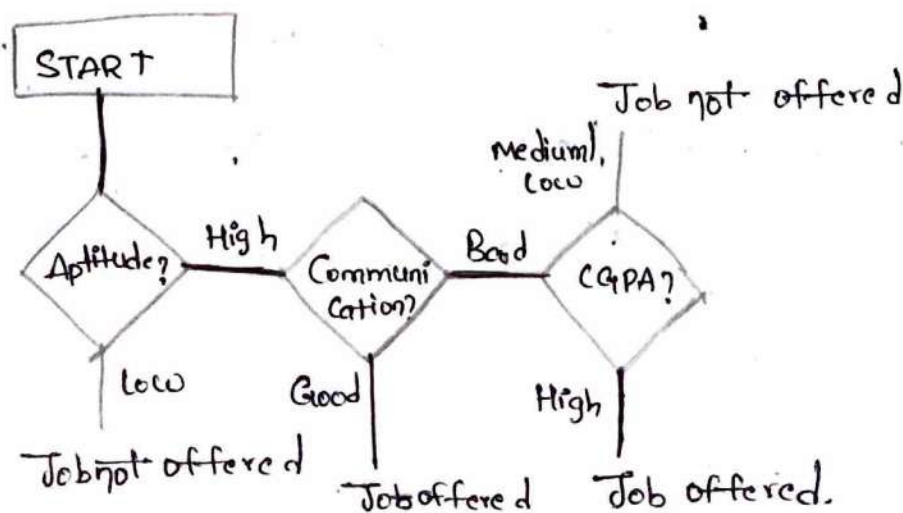 START
Job not offered
Medium,
Low
High
Bad
Aptitude?
Communi
cation?
CGPA?
Low
Good
High
Job not offered
Job offered
Job offered.